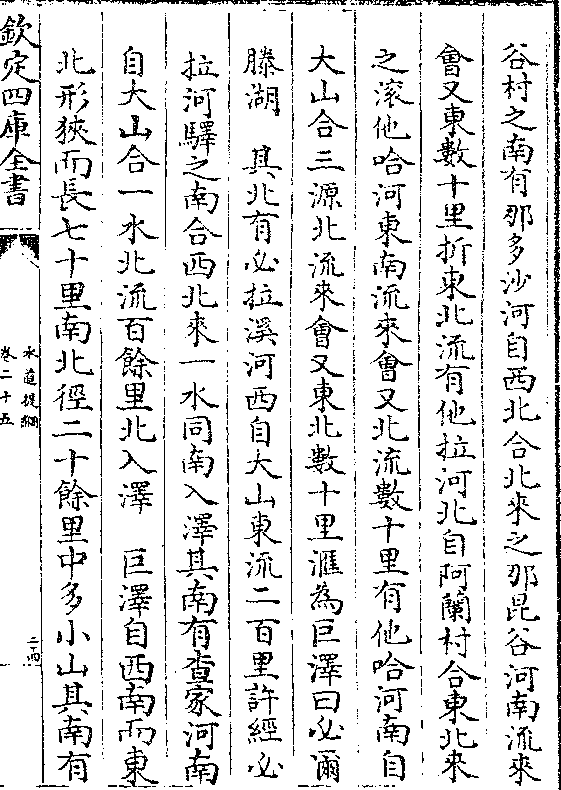 谷村之南有那多沙河自西北合北來之那昆谷河南流來
會又東數十里折東北流有他拉河北自阿蘭村合東北來
之滚他哈河東南流來會又北流數十里有他哈河南自
大山合三源北流來會又東北數十里滙為巨澤曰必爾
滕湖　其北有必拉溪河西自大山東流二百里許經必
拉河驛之南合西北來一水同南入澤其南有查家河南
自大山合一水北流百餘里北入澤　巨澤自西南而東
北形狹而長七十里南北徑二十餘里中多小山其南有
欽定四庫全書
水道提綱
卷二十五
二十四